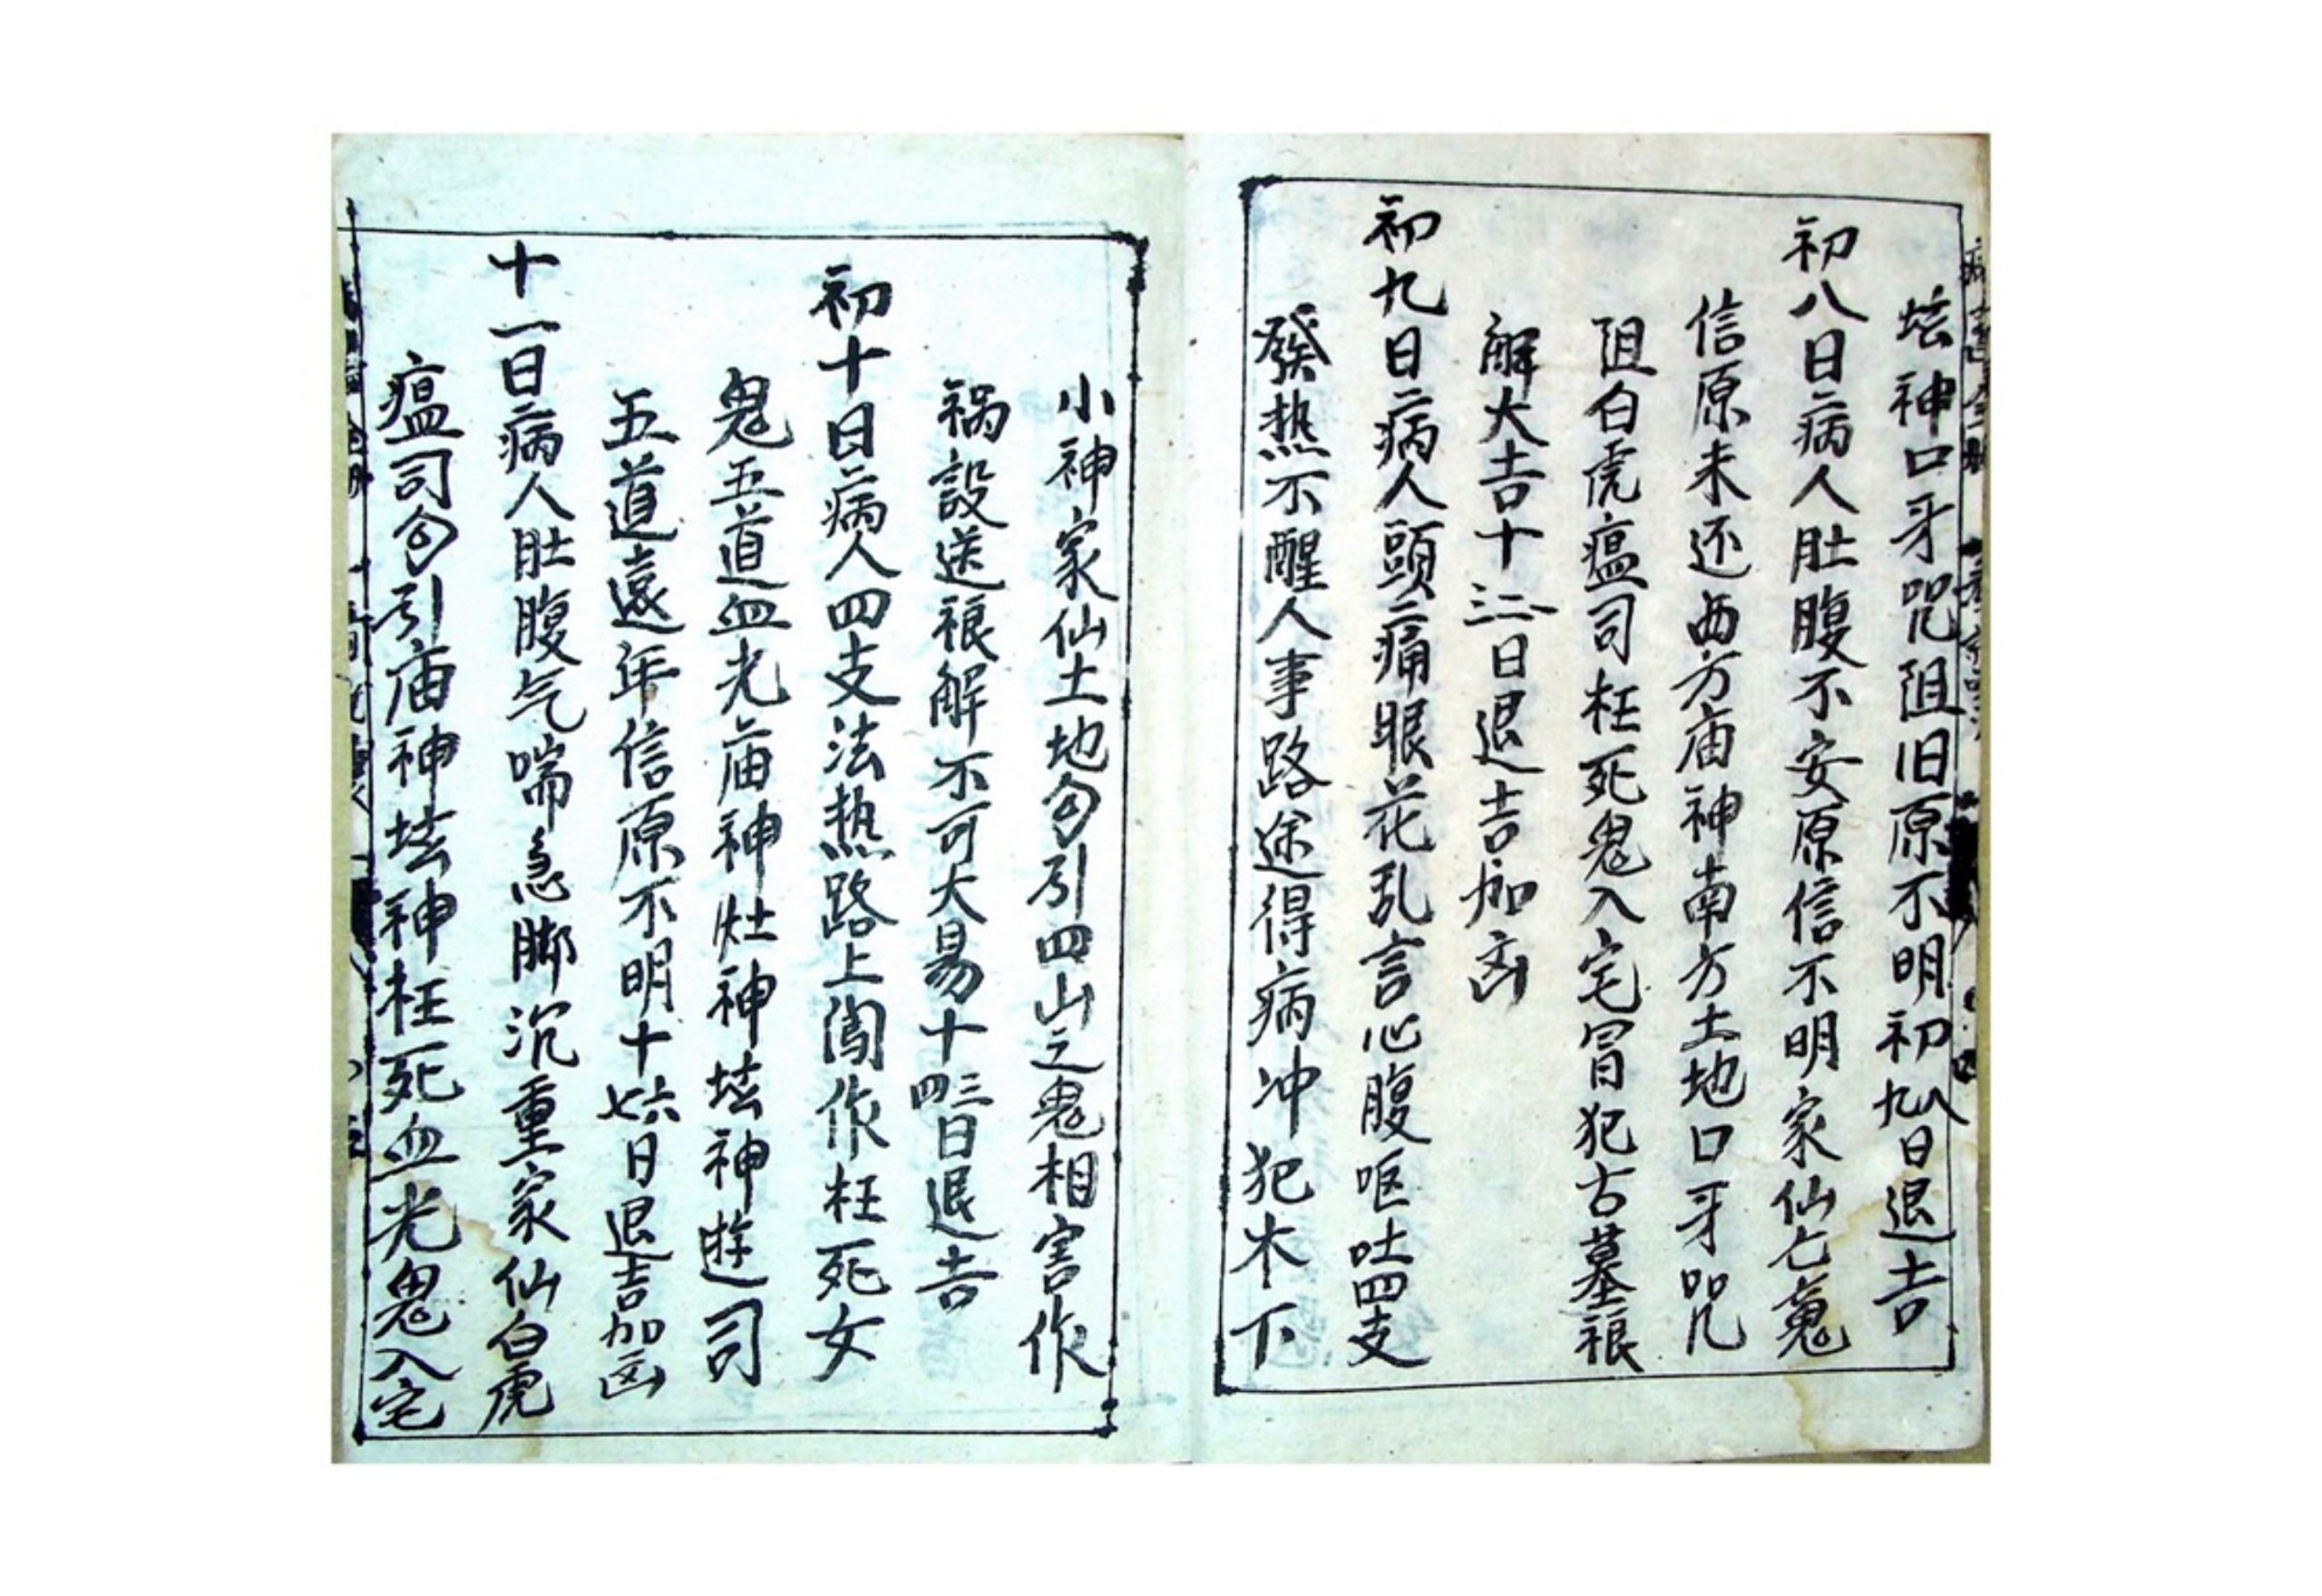 坛神口牙咒阻旧原不明初九八日退吉
初八日病人肚腹不安原信不明家仙
信原未还西方庙神南方土地口牙咒
阻白虎瘟司枉死鬼入宅冐犯古墓禓
解大吉十三二日退吉加凶
初九日病人頭痛眼花乱言心腹呕吐四支
發热不醒人事路途得病冲犯木下
小神家仙土地勾引四山之鬼相害作
祸設送禓解不可大易十四三日退吉
初十日病人四支法热路上闖作枉死女
鬼五道血光庙神灶神坛神遊司
五道遠年信原不明十七六日退吉加凶
十一日病人肚腹气喘急脚沉重家仙白虎
瘟司勾引庙神坛神枉死血光鬼入宅